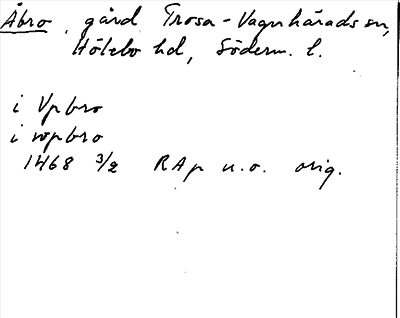 Åbro, gård Trosa-Vagnhärads sn,
Hölebo hd, Söderm. l.
i Vpbro
i wpbro
1468 3/2 RAp u.o. orig.